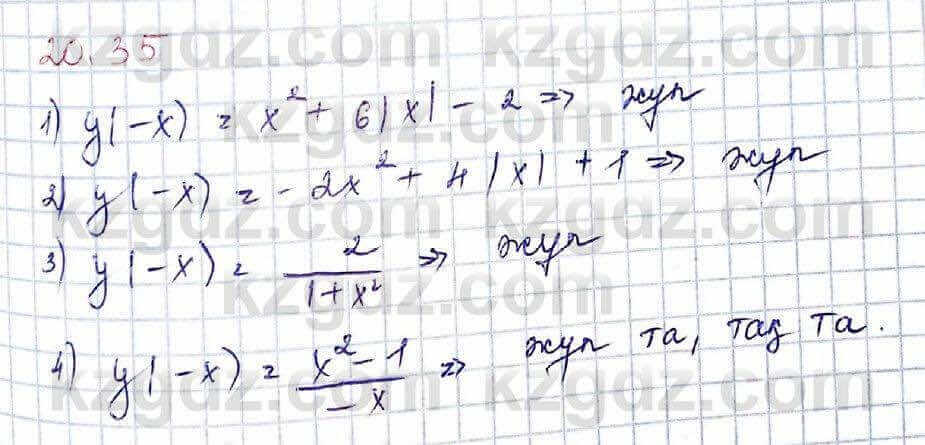 20.35
1) y(-x) = x² + 6|x| - 2 => жұп
2) y(-x) = -2x² + 4|x| + 1 => жұп
3) y(-x) = 2/(1+x²) => жұп
4) y(-x) = (x² - 1)/(-x) => жұп та, тақ та.
kzgdz.com kzgdz.com
kzgdz.com
kzgdz.com kzgdz.com
kzgdz.com
kzgdz.com kzgdz.com